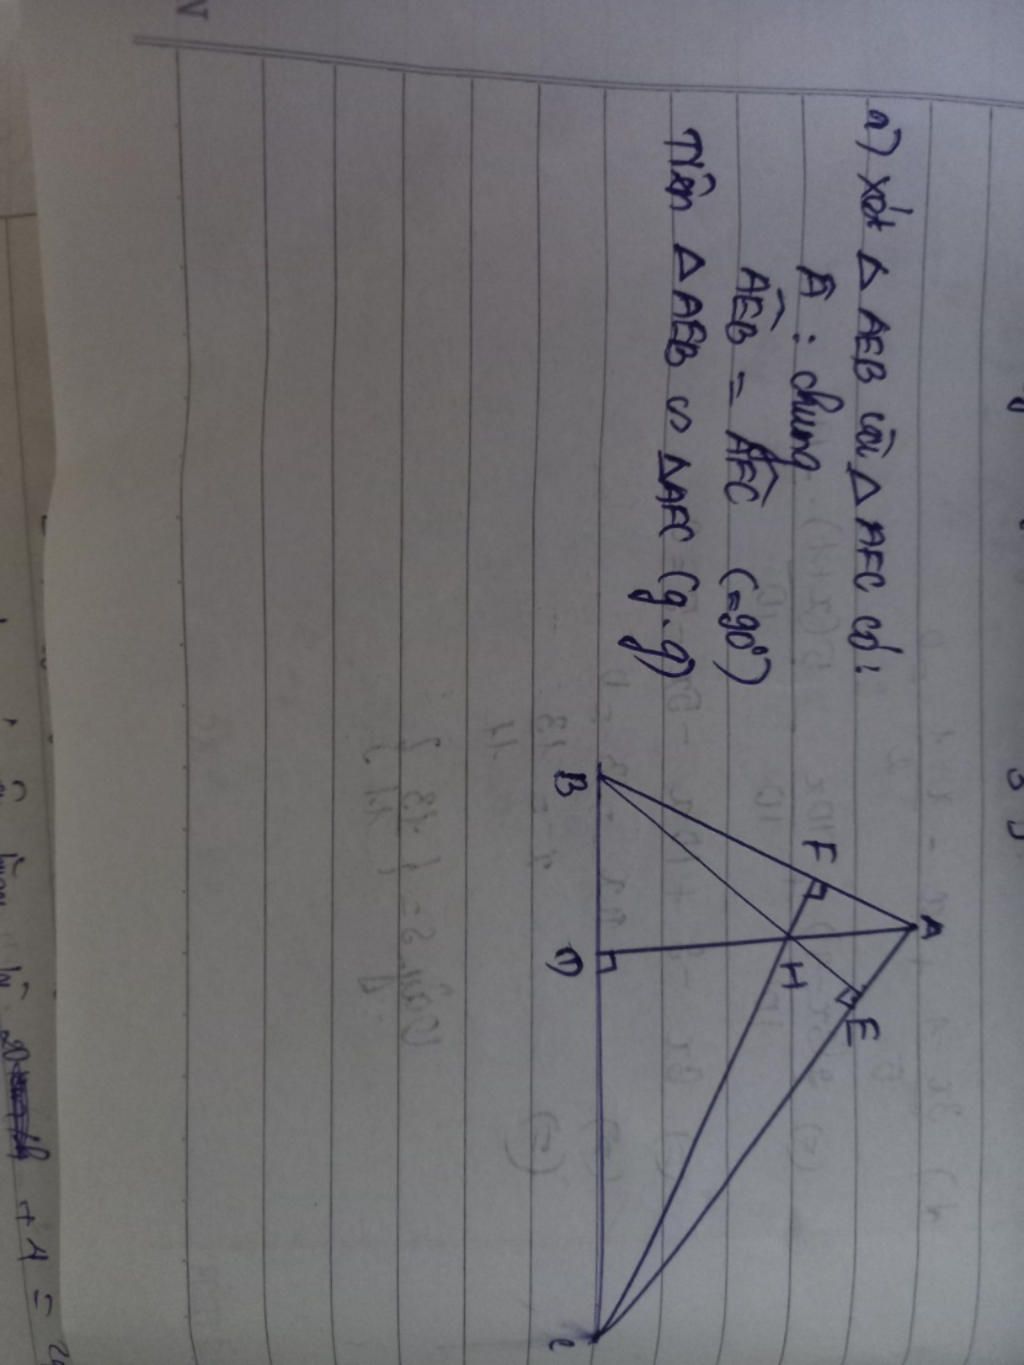 a) Xét Δ AEB và Δ AFC có:
Â : chung
AÊB = AF̂C (=90°)
Nên Δ AEB ∽ ΔAFC (g.g)
A
F
E
H
B
D
C
+ A =